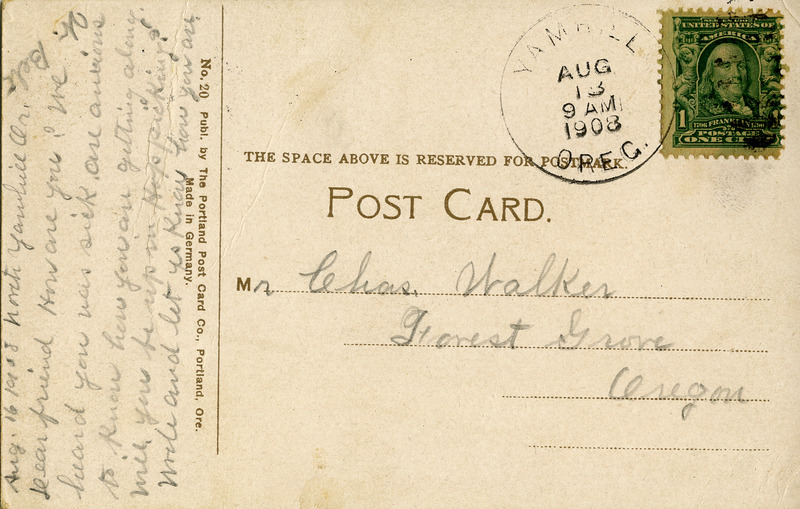 Aug. 16 1908 North Yamhill Or.
Dear friend How are you? We
heard you was sick. are anxious
to know how you are getting along.
Will you be up in Hopp picking?
Write and let us know how you are
No. 20 Publ. by The Portland Post Card Co., Portland, Ore.
Made in Germany.
YAMHILL
AUG
13
9 AM
1908
OREG.
SERIES 1902
UNITED STATES OF
AMERICA
1
FRANKLIN
POSTAGE
ONE CENT
THE SPACE ABOVE IS RESERVED FOR POSTMARK.
POST CARD.
Mr Chas. Walker
Forest Grove
Oregon